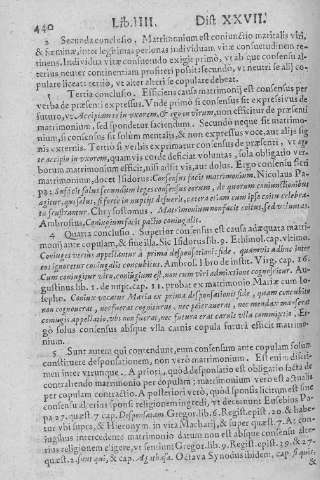 440 Lib. IIII. Dist XXVII.
2 Secunda conclusio. Matrimonium est coniunctio maritalis viri,
& fœminæ, inter legitimas personas individuam vitæ consuetudinem re-
tinens. Individua vitæ consuetudo exigit primò, vt absque consensu al-
terius neuter continentiam profiteri possit: secundò, vt neutri se alij co-
pulare liceat: tertiò, vt alter alteri se copulare debeat.
3 Tertia conclusio. Efficiens causa matrimonij est consensus per
verba de præsenti expressus. Vnde primò si consensus sit expressivus de
futuro, vt, Accipiam te in vxorem, & ego in virum, non efficitur de præsenti
matrimonium, sed spondetur faciendum. Secundò neque fit matrimo-
nium, si consensus sit solùm mentalis, & non expressus voce, aut alijs sig-
nis externis. Tertiò si verbis exprimatur consensus de præsenti, vt ego
te accipio in vxorem, quamvis corde deficiat voluntas, sola obligatio ver-
borum matrimonium efficit, nisi adsit vis, aut dolus. Ergo consensus facit
matrimonium, docet Isidorus: Consensus facit matrimonium. Nicolaus Pa-
pa: Sufficit solus secundum leges consensus eorum, de quorum coniunctionibus
agitur, qui solus, si fortè in nuptijs defuerit, cætera etiam cum ipso coitu celebra-
ta frustrantur. Chrysostomus: Matrimonium non facit coitus, sed voluntas.
Ambrosius, Coniugium facit pactio coniugalis.
4 Quarta conclusio. Superior consensus est causa adæquata matri-
monij ante copulam, & sine illa. Sic Isidorus lib. 9. Ethimol. cap. vltimo.
Coniuges verius appellantur à prima desponsationis fide, quamvis adhuc inter
eos ignoretur coniugalis concubitus. Ambrol. libro de instit. Virg. cap. 16.
Cum coniugitur viro, coniugium est, non cum viri admixtione cognoscitur. Au-
gustinus lib. 1. de nupt. cap. 11. probat ex matrimonio Mariæ cum Io-
sepho. Coniux vocatur Maria ex prima desponsationis fide, quam concubitu
non cognoverat, nec fuerat cogniturus, nec perierat, nec mendax manserat
coniugis appellatio, vbi non fuerat, nec futura erat carnis vlla commixtio. Er-
gò solus consensus absque vlla carnis copula futura efficit matrimo-
nium.
5 Sunt autem qui contendunt, eum consensum ante copulam solùm
constituere desponsationem, non verò matrimonium. Est enim discri-
men inter vtrunque. A priori, quòd desponsatio est obligatio facta de
contrahendo matrimonio per copulam; matrimonium verò est
per copulam contractio. A posteriori verò, quòd sponsa licitum est sine
consensu alterius sponsi religionem ingredi, vt decernunt Eusebius Pa-
pa 27. quæst. 7. cap. Desponsatam Gregor. lib. 6. Regist. epist. 20. & habe-
tur vbi supra, & Hieronym. in vita Macharij, & super quæst. 7. A: con-
sugijs intercedente matrimonio datum non est absque consensu alte-
rius religionem eligere, vt sensit Gregor. lib. 9. Regist. epist. 39. & 27.
quæst. 2. sunt qui, & cap. Agathosa. Octava Synodus ibidem, cap. si quis,
&